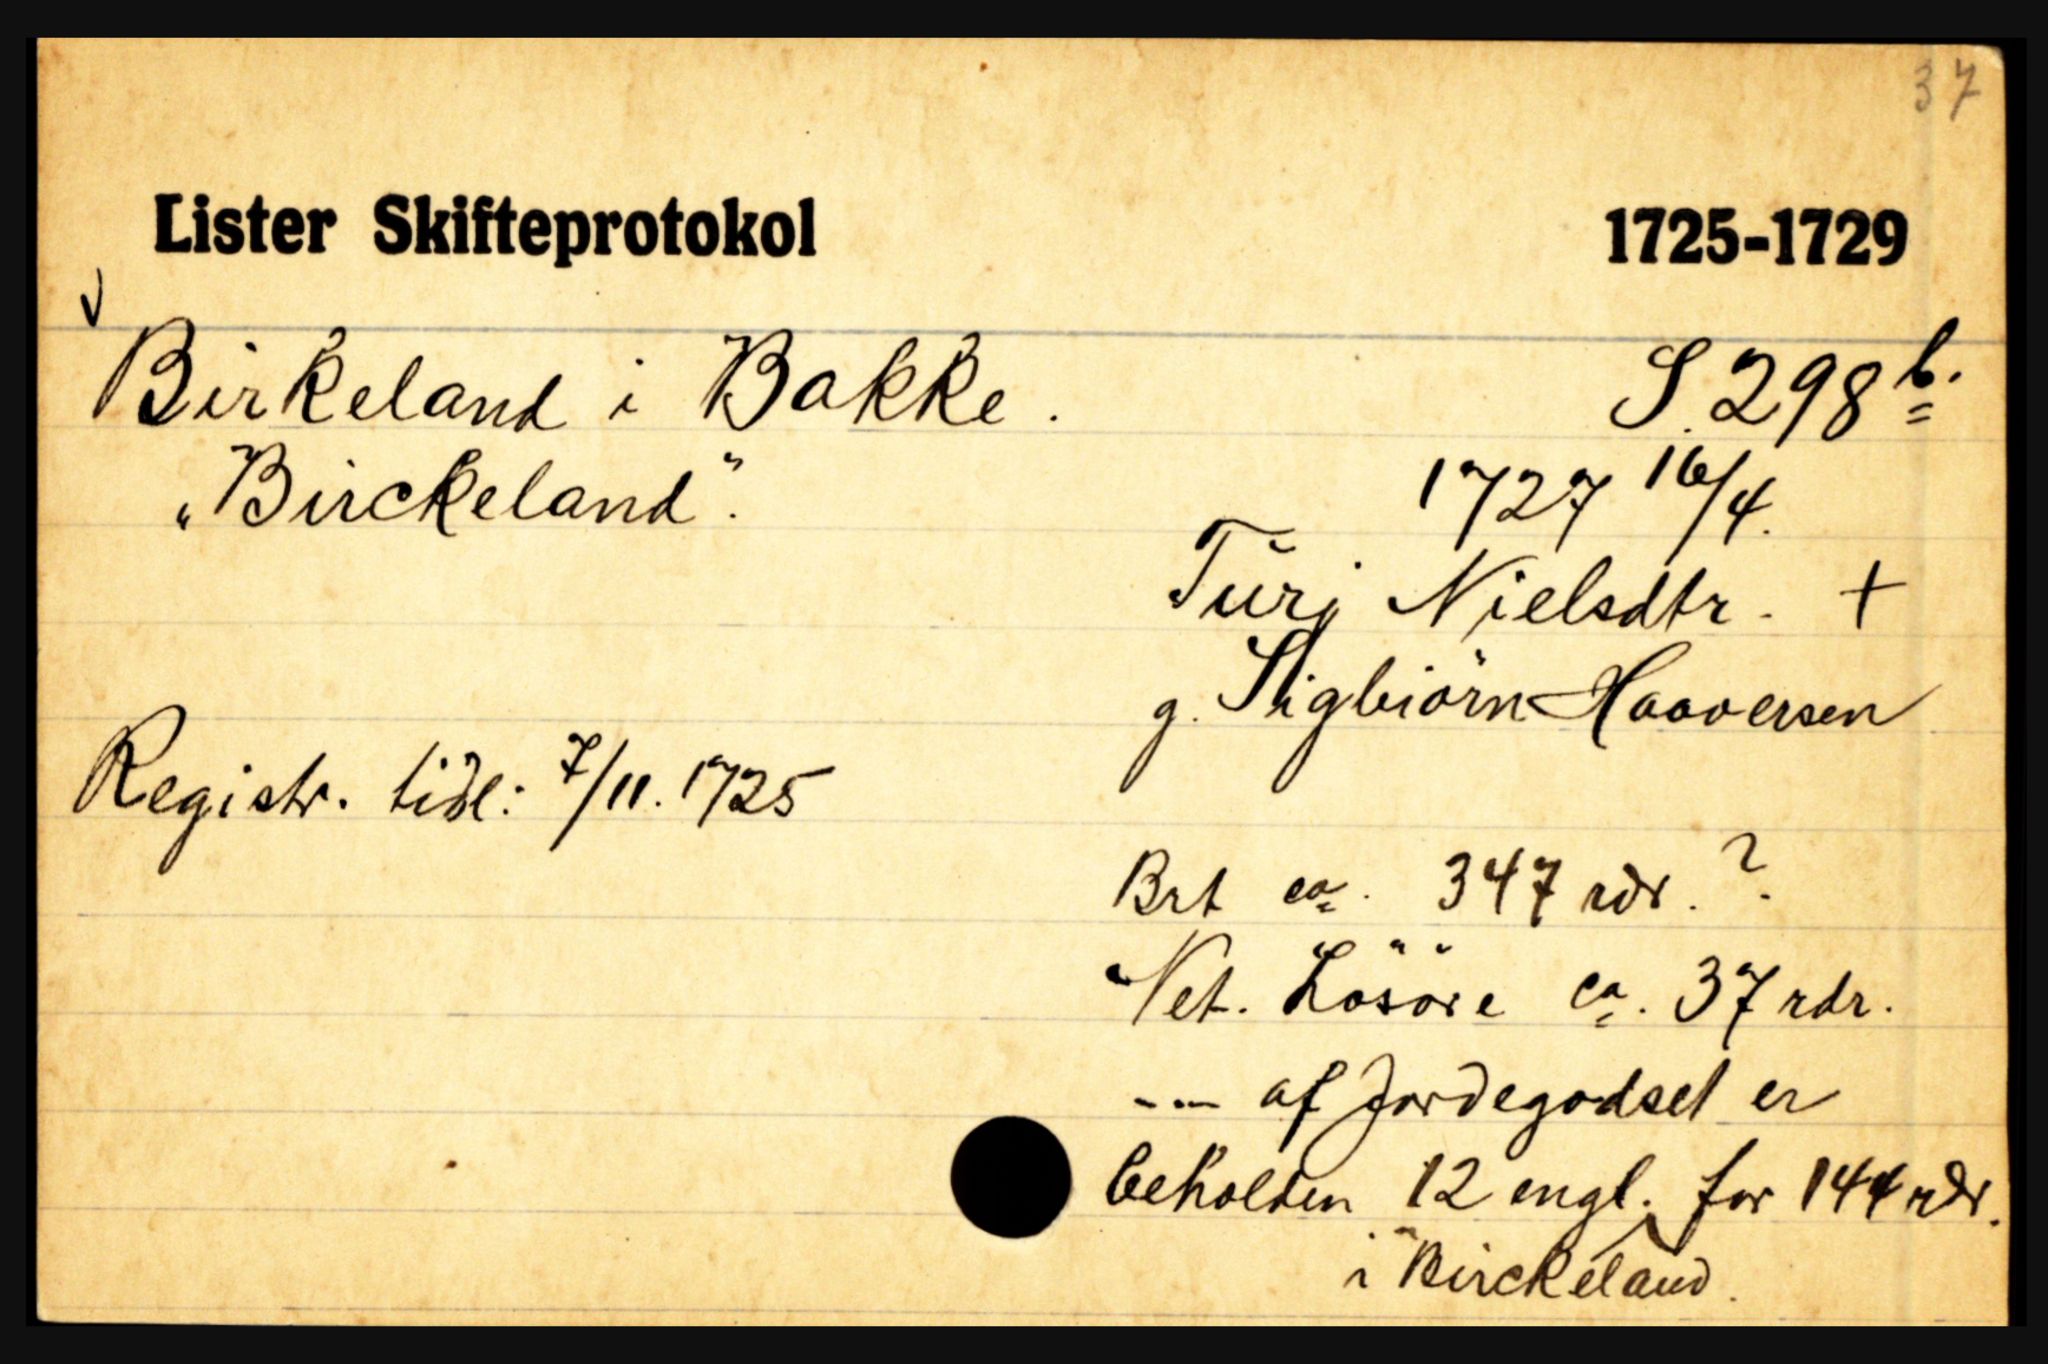 37
Lister Skifteprotokol 1725-1729
Birkeland i Bakke. S. 298 b.
"Birckeland". 1727 16/4.
Turi Nielsdtr. +
g. Sigbiörn Haaversen
Registr. tidl: 7/11. 1725
Brt ca. 347 rdr. ?.
Net. Lösöre ca. 37 rdr.
--- af Jordegodset er
beholden 12 engl. for 144 rdr.
i Birckeland.